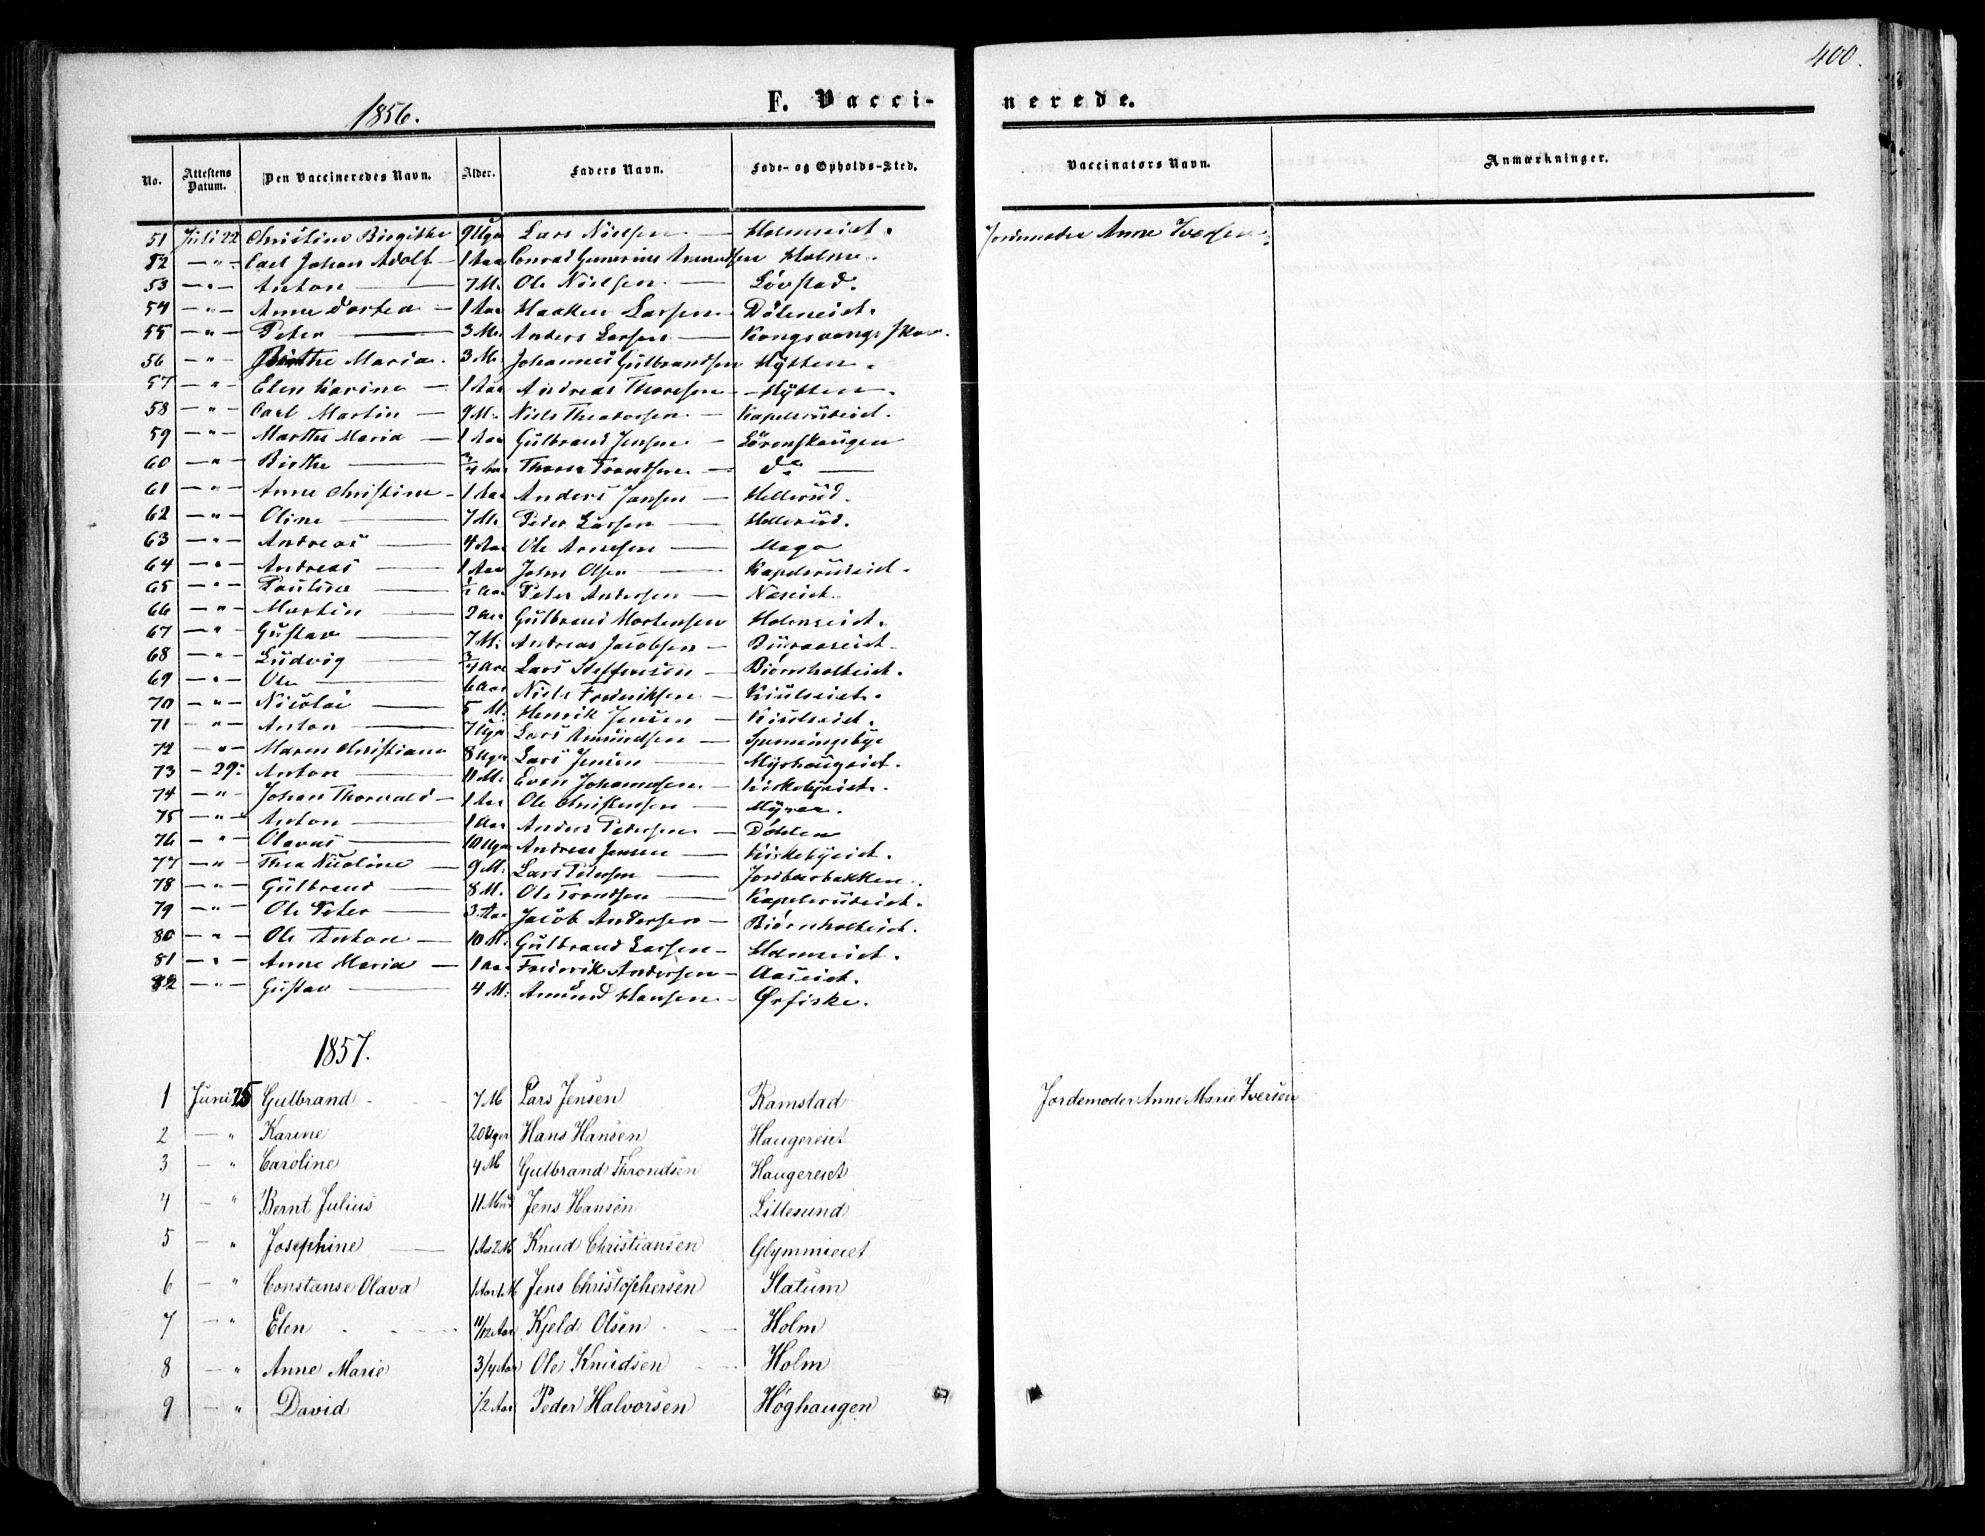 400.
1856.
F. Vaccinerede.
No. Attestens Datum. Den Vaccineredes Navn. Alder. Faders Navn. Føde- og Opholds-Sted. Vaccinators Navn. Anmærkninger.
51 Juli 22 Christine Birgitte 9 Uger Lars Nielsen — Holmseiet. Jordmoder Anne Iversen
52 — " — Carl Johan Adolf — 1 Aar Conrad Gunerius Amundsen Holm.
53 — " — Anton — 7 M. Ole Nielsen — Løvstad.
54 — " — Anne Dortea — 1 Aar Haaken Larsen Döleneiet.
55 — " — Peter — 3 M. Anders Larsen — Kongsvangs Skov.
56 — " — Birthe Maria. 3 M. Johannes Gulbrandsen Hytten.
57 — " — Elen Karine — 1 Aar Andreas Thoresen — Hytten.
58 — " — Carl Martin — 9 M. Niels Theodorsen — Kapelsrudeiet.
59 — " — Marthe Maria — 1 Aar Gulbrand Jensen — Lörenskaugen
60 — " — Birthe — 3/4 Aar Thorer Trondsen — do —
61 — " — Anne Christine — 1 Aar Anders Jansen — Hellerud.
62 — " — Oline — 7 M. Peder Larsen — Hellerud.
63 — " — Andreas — 4 Aar Ole Arnesen — Maga
64 — " — Andreas — 1 Aar John Olsen — Kapelsrudeiet.
65 — " — Pauline — 1/2 Aar Peter Andersen — Næseiet.
66 — " — Martin — 2 Aar Gulbrand Mortensen Holmseiet.
67 — " — Gustav — 7 M. Andreas Jacobsen — Buraaseiet.
68 — " — Ludvig — 3/4 Aar Lars Steffensen — Biørnholteiet.
69 — " — Ole — 6 Aar Niels Frederiksen — Kiulseiet.
70 — " — Nicolai — 5 M. Henrik Jensen — Kiulseiet.
71 — " — Anton — 7 Uger Lars Amundsen — Spenningsbye
72 — " — Maren Christiane 8 Uger Lars Jensen — Myrhaugeiet.
73 — 29. Anton — 11 M. Even Johannesen — Kirkebyeiet.
74 — " — Johan Thorvald — 1 Aar Ole Christensen — Myrer.
75 — " — Anton — 1 Aar Anders Pedersen — Döhlen
76 — " — Olavus — 10 Uger Andreas Jensen — Kirkebyeiet.
77 — " — Thea Nicoline — 9 M. Lars Petersen — Jordbærbakken.
78 — " — Gulbrand — 8 M. Ole Trondsen — Kapelsrudeiet.
79 — " — Ole Peter — 3 Aar Jacob Andersen — Biørnholteiet.
80 — " — Ole Anton — 10 M. Gulbrand Larsen — Holmseiet.
81 — " — Anne Maria — 1 Aar Frederik Andersen — Aaseiet.
82 — " — Gustav — 4 M. Amund Hansen — Ørfiske.
1857.
1 Juni 25 Gulbrand 7 M Lars Jensen Ramstad Jordemoder Anne Marie Iversen
2 — " Karine 20 Uger Hans Hansen Haugereiet
3 — " Caroline 4 M Gulbrand Throndsen Haugereiet
4 — " Bernt Julius 11 Mnd Jens Hansen Lillesund
5 — " Josephine — 1 Aar 2 M Knud Christiansen Glymmieiet
6 — " Constanse Olava 1 Aar 1 M Jens Christophersen Slatum
7 — " Elen 11/12 Aar Kjeld Olsen Holm
8 — " Anne Marie 3/4 Aar Ole Knudsen Holm
9 — " David 1/2 Aar Peder Halvorsen Høghaugen